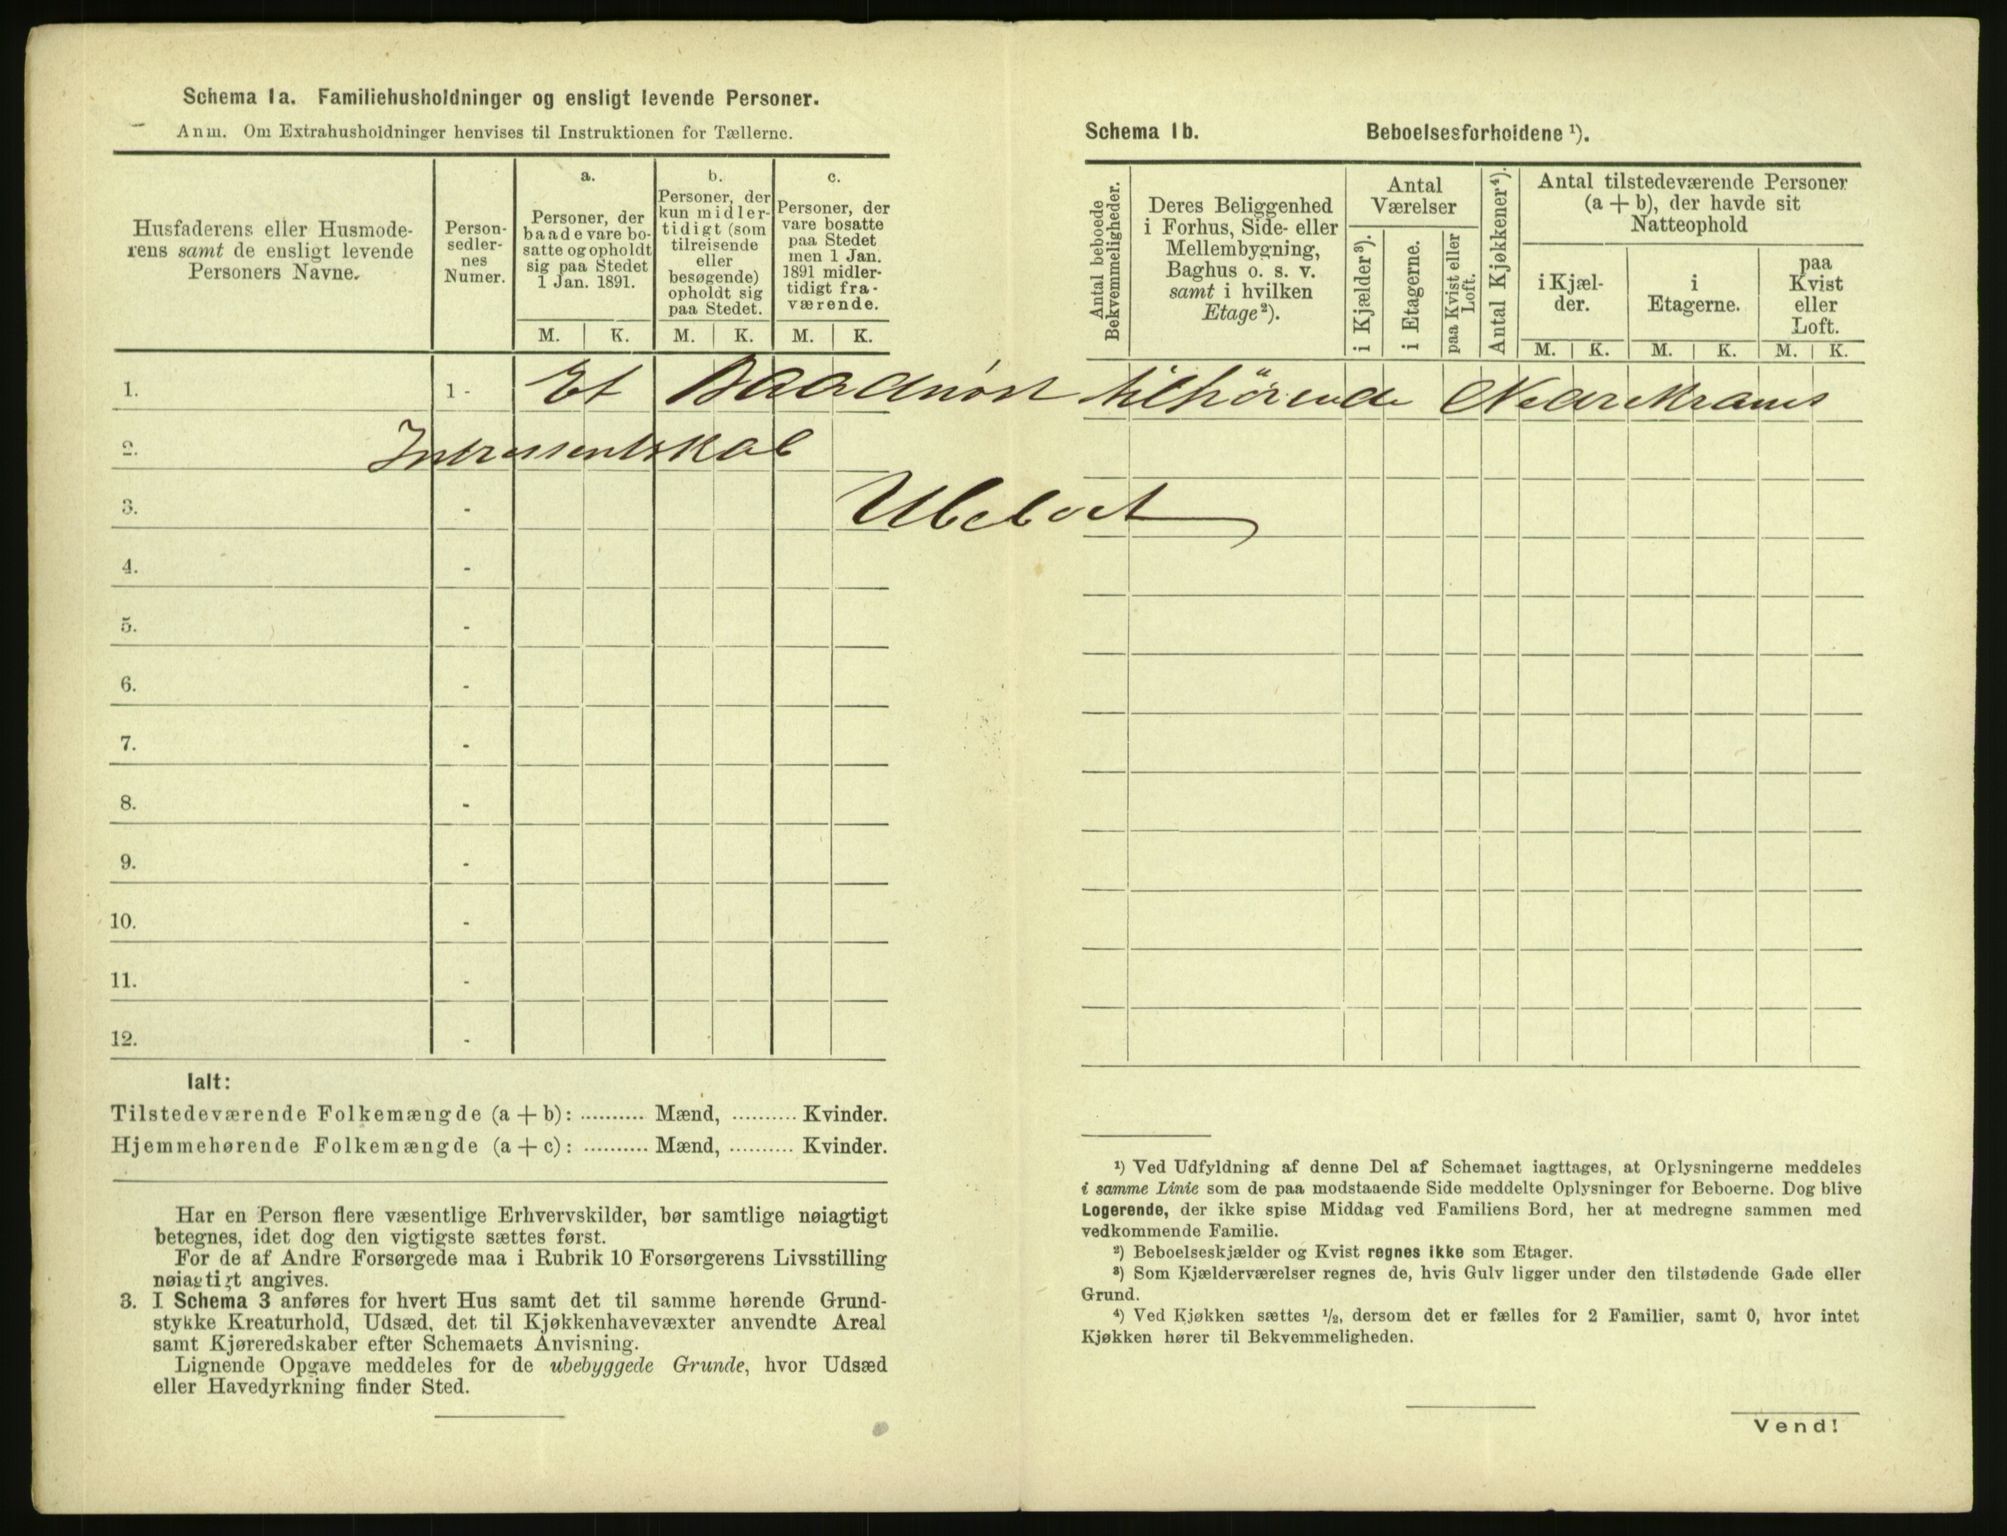 Schema 1a. Familiehusholdninger og ensligt levende Personer.
Anm. Om Extrahusholdninger henvises til Instruktionen for Tællerne.
Husfaderens eller Husmode-
rens samt de ensligt levende
Personers Navne.
Person-
sedler-
nes
Numer.
a.
Personer, der
baade vare bo-
satte og opholdt
sig paa Stedet
1 Jan. 1891.
b.
Personer, der
kun midler-
tidigt (som
tilreisende
eller
besøgende)
opholdt sig
paa Stedet.
c.
Personer, der
vare bosatte
paa Stedet
men 1 Jan.
1891 midler-
tidigt fra-
værende.
M. K. M. K. M. K.
1. 1 - Et Baadnøst tilhörende Nedrekranes
2. Intressentskab
3. - Ubeboet
4. -
5. -
6. -
7. -
8. -
9. -
10. -
11. -
12. -
Ialt:
Tilstedeværende Folkemængde (a + b): .......... Mænd, .......... Kvinder.
Hjemmehørende Folkemængde (a + c): .......... Mænd, .......... Kvinder.
Har en Person flere væsentlige Erhvervskilder, bør samtlige nøiagtigt
betegnes, idet dog den vigtigste sættes først.
For de af Andre Forsørgede maa i Rubrik 10 Forsørgerens Livsstilling
nøiagtigt angives.
3. I Schema 3 anføres for hvert Hus samt det til samme hørende Grund-
stykke Kreaturhold, Udsæd, det til Kjøkkenhavevæxter anvendte Areal
samt Kjøreredskaber efter Schemaets Anvisning.
Lignende Opgave meddeles for de ubebyggede Grunde, hvor Udsæd
eller Havedyrkning finder Sted.
Schema 1b. Beboelsesforholdene ¹).
Antal beboede
Bekvemmeligheder.
Deres Beliggenhed
i Forhus, Side- eller
Mellembygning,
Baghus o. s. v.
samt i hvilken
Etage²).
Antal
Værelser
i Kjælder³).
i Etagerne.
paa Kvist eller
Loft.
Antal Kjøkkener⁴).
Antal tilstedeværende Personer
(a + b), der havde sit
Natteophold
i Kjæl-
der.
i
Etagerne.
paa
Kvist
eller
Loft.
M. K. M. K. M. K.
¹) Ved Udfyldning af denne Del af Schemaet iagttages, at Oplysningerne meddeles
i samme Linie som de paa modstaaende Side meddelte Oplysninger for Beboerne. Dog blive
Logerende, der ikke spise Middag ved Familiens Bord, her at medregne sammen med
vedkommende Familie.
²) Beboelseskjælder og Kvist regnes ikke som Etager.
³) Som Kjælderværelser regnes de, hvis Gulv ligger under den tilstødende Gade eller
Grund.
⁴) Ved Kjøkken sættes ¹/₂, dersom det er fælles for 2 Familier, samt 0, hvor intet
Kjøkken hører til Bekvemmeligheden.
Vend!